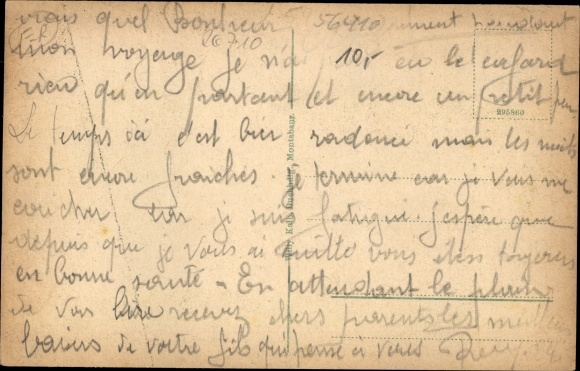 vrais quel Bonheur
mon voyage je n'ai eu le cafard
rien qu'en partant et encore un petit peu
Le temps ici c'est bien radouci mais les nuits
sont encore fraiches. Je termine car je vais me
coucher car je suis fatigué. J'espère que
depuis que je vous ai quitté vous êtes toujours
en bonne santé - En attendant le plaisir
de vous lire recevez chers parents les meilleurs
baisers de votre fils qui pense à vous
56410
26710
10,-
295860
Montabaur.